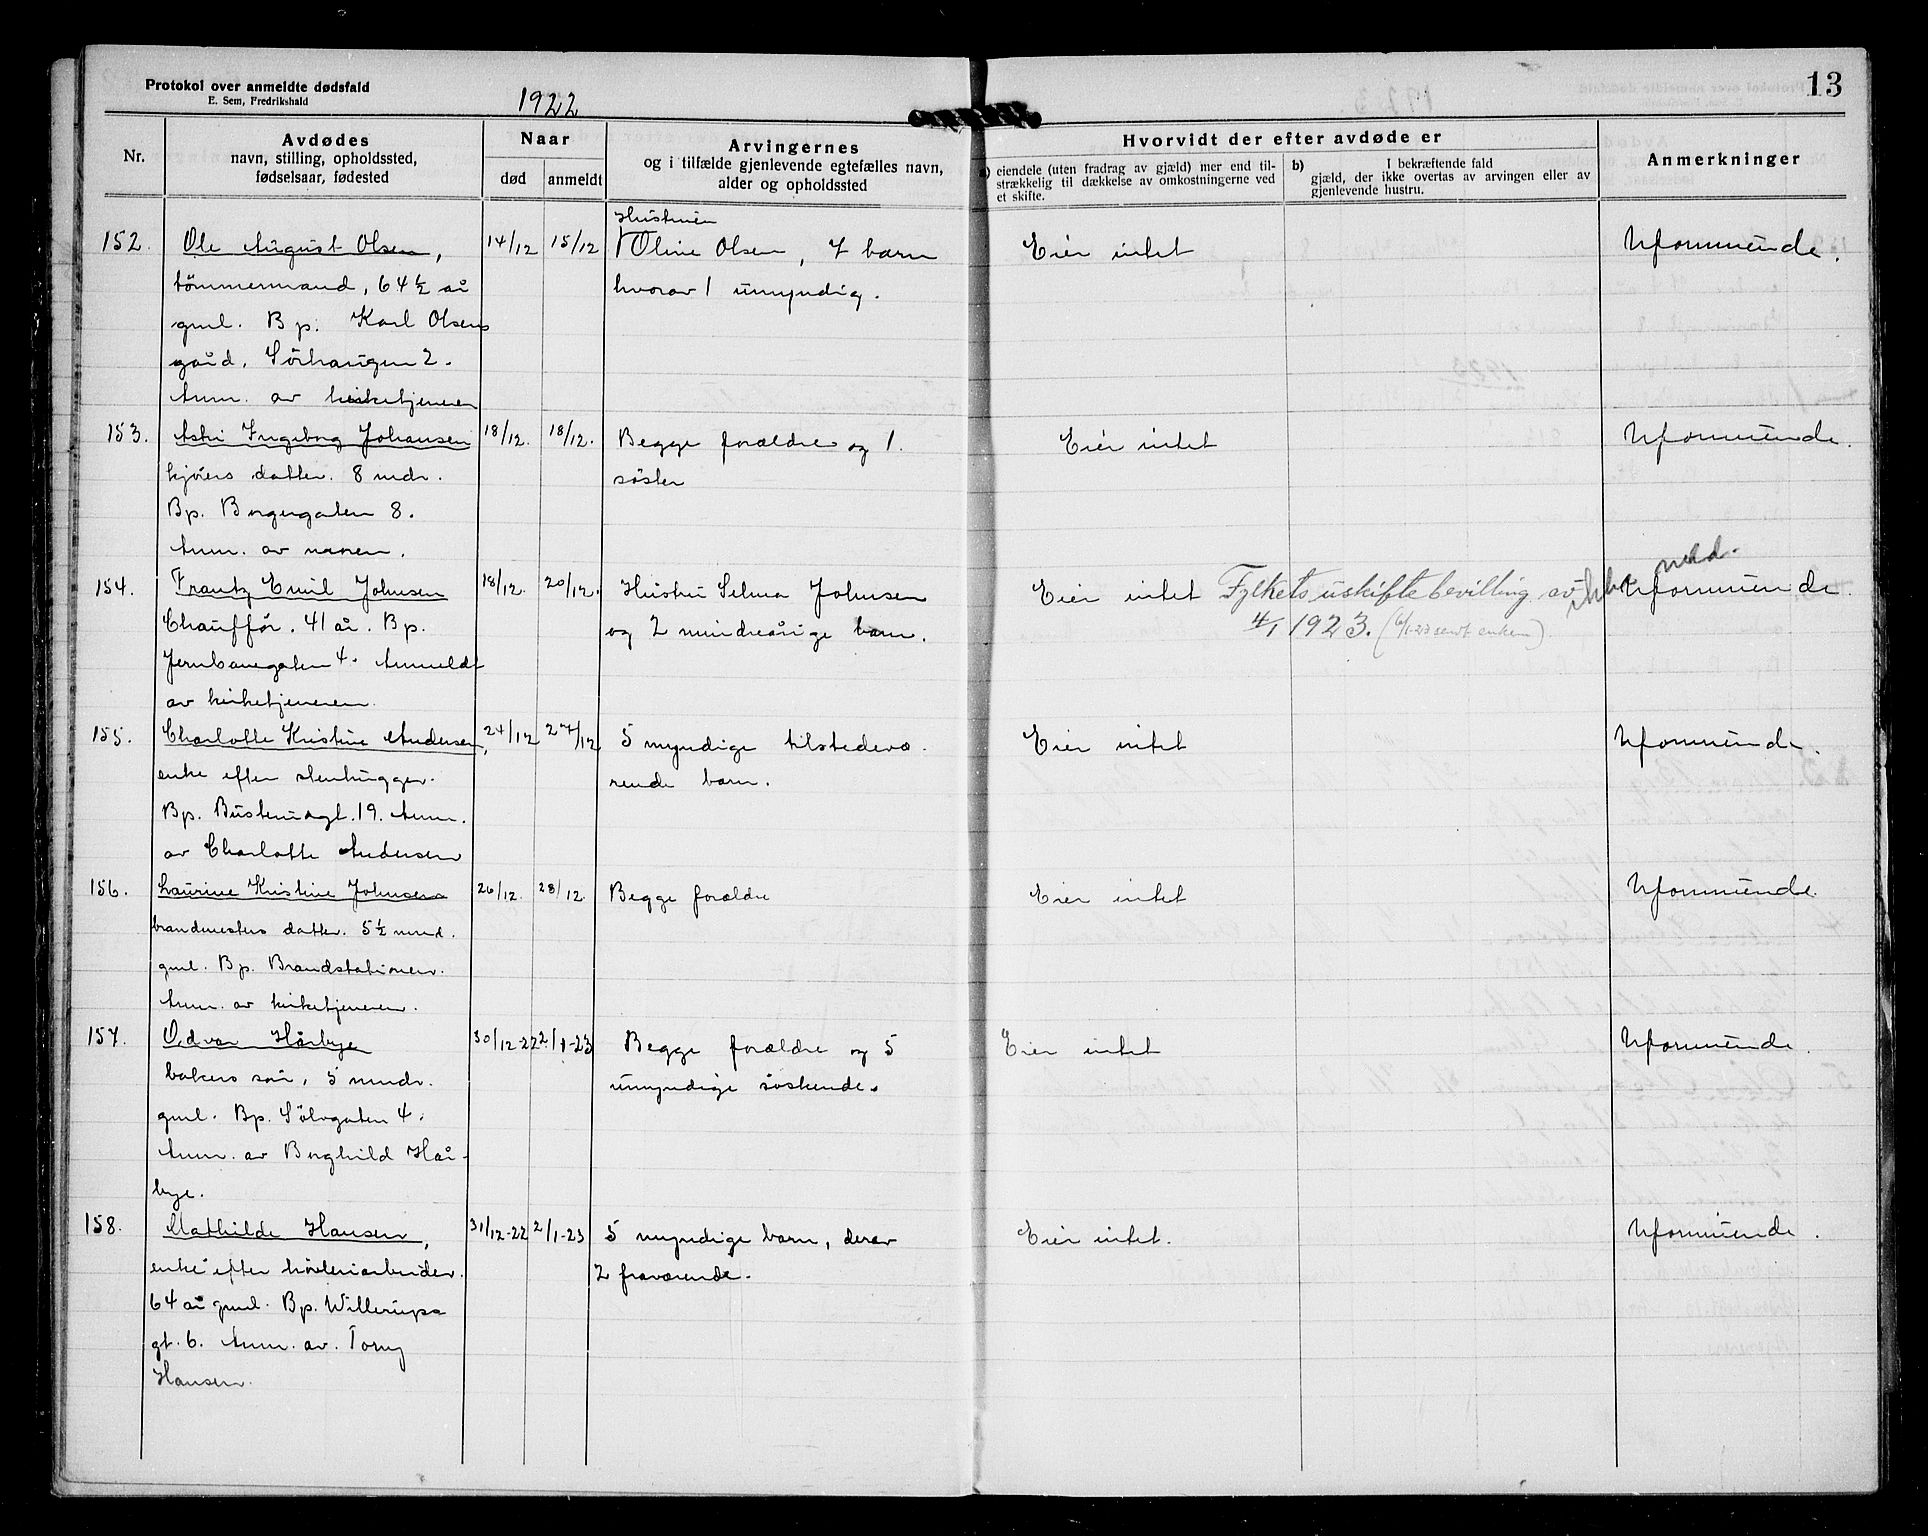 Protokol over anmeldte dødsfald
E. Sem, Fredrikshald
1922
13
Nr.
Avdødes
navn, stilling, opholdssted,
fødselsaar, fødested
Naar
død
anmeldt
Arvingernes
og i tilfælde gjenlevende egtefælles navn,
alder og opholdssted
Hvorvidt der efter avdøde er
a) eiendele (uten fradrag av gjæld) mer end til-
strækkelig til dækkelse av omkostningerne ved
et skifte.
b) I bekræftende fald
gjæld, der ikke overtas av arvingen eller av
gjenlevende hustru.
Anmerkninger
152.
Ole August Olsen,
tömmermand, 64½ år
gml. Bp. Karl Olsens
gård, Sörhaugen 2.
Anm. av kirketjeneren
14/12
15/12
Hustruen
Oline Olsen, 7 barn
hvorav 1 umyndig.
Eier intet
Uformuende.
153.
Astri Ingeborg Johansen
kjörers datter. 8 mdr.
Bp. Borgergaten 8.
Anm. av
18/12.
18/12.
Begge forældre og 1.
söster
Eier intet
Uformuende.
154.
Frantz Emil Johnsen
Chaufför. 41 år. Bp.
Jernbanegaten 4. Anmeldt
av kirketjeneren.
18/12.
20/12.
Hustru Selma Johnsen
og 2 mindreårige barn.
Eier intet Fylkets uskiftebevilling av
4/1 1923. (6/1-23 sendt enken).
Uformuende.
155.
Charlotte Kristine Andersen,
enke efter stenhugger.
Bp. Busterudgt. 19. Anm.
av Charlotte Andersen
24/12
27/12
5 myndige tilstedevæ-
rende barn.
Eier intet
Uformuende.
156.
Laurine Kristine Johnsen
brandmesters datter. 5½ mnd.
gml. Bp. Brandstationen.
Anm. av kirketjeneren.
26/12.
28/12.
Begge forældre
Eier intet
Uformuende.
157.
Odvar Hårbye
bakers sön, 5 mndr.
gml. Bp. Sölvgaten 4.
Anm. av Borghild Hår-
bye.
30/12-22
2/1-23
Begge forældre og 5
umyndige söskende.
Eier intet
Uformuende.
158.
Mathilde Hansen,
enke efter hövleriarbeider.
64 år gml. Bp. Willerups
gt. 6. Anm. av
Hansen.
31/12-22
2/1-23
5 myndige barn, derav
2 fraværende.
Eier intet.
Uformuende.